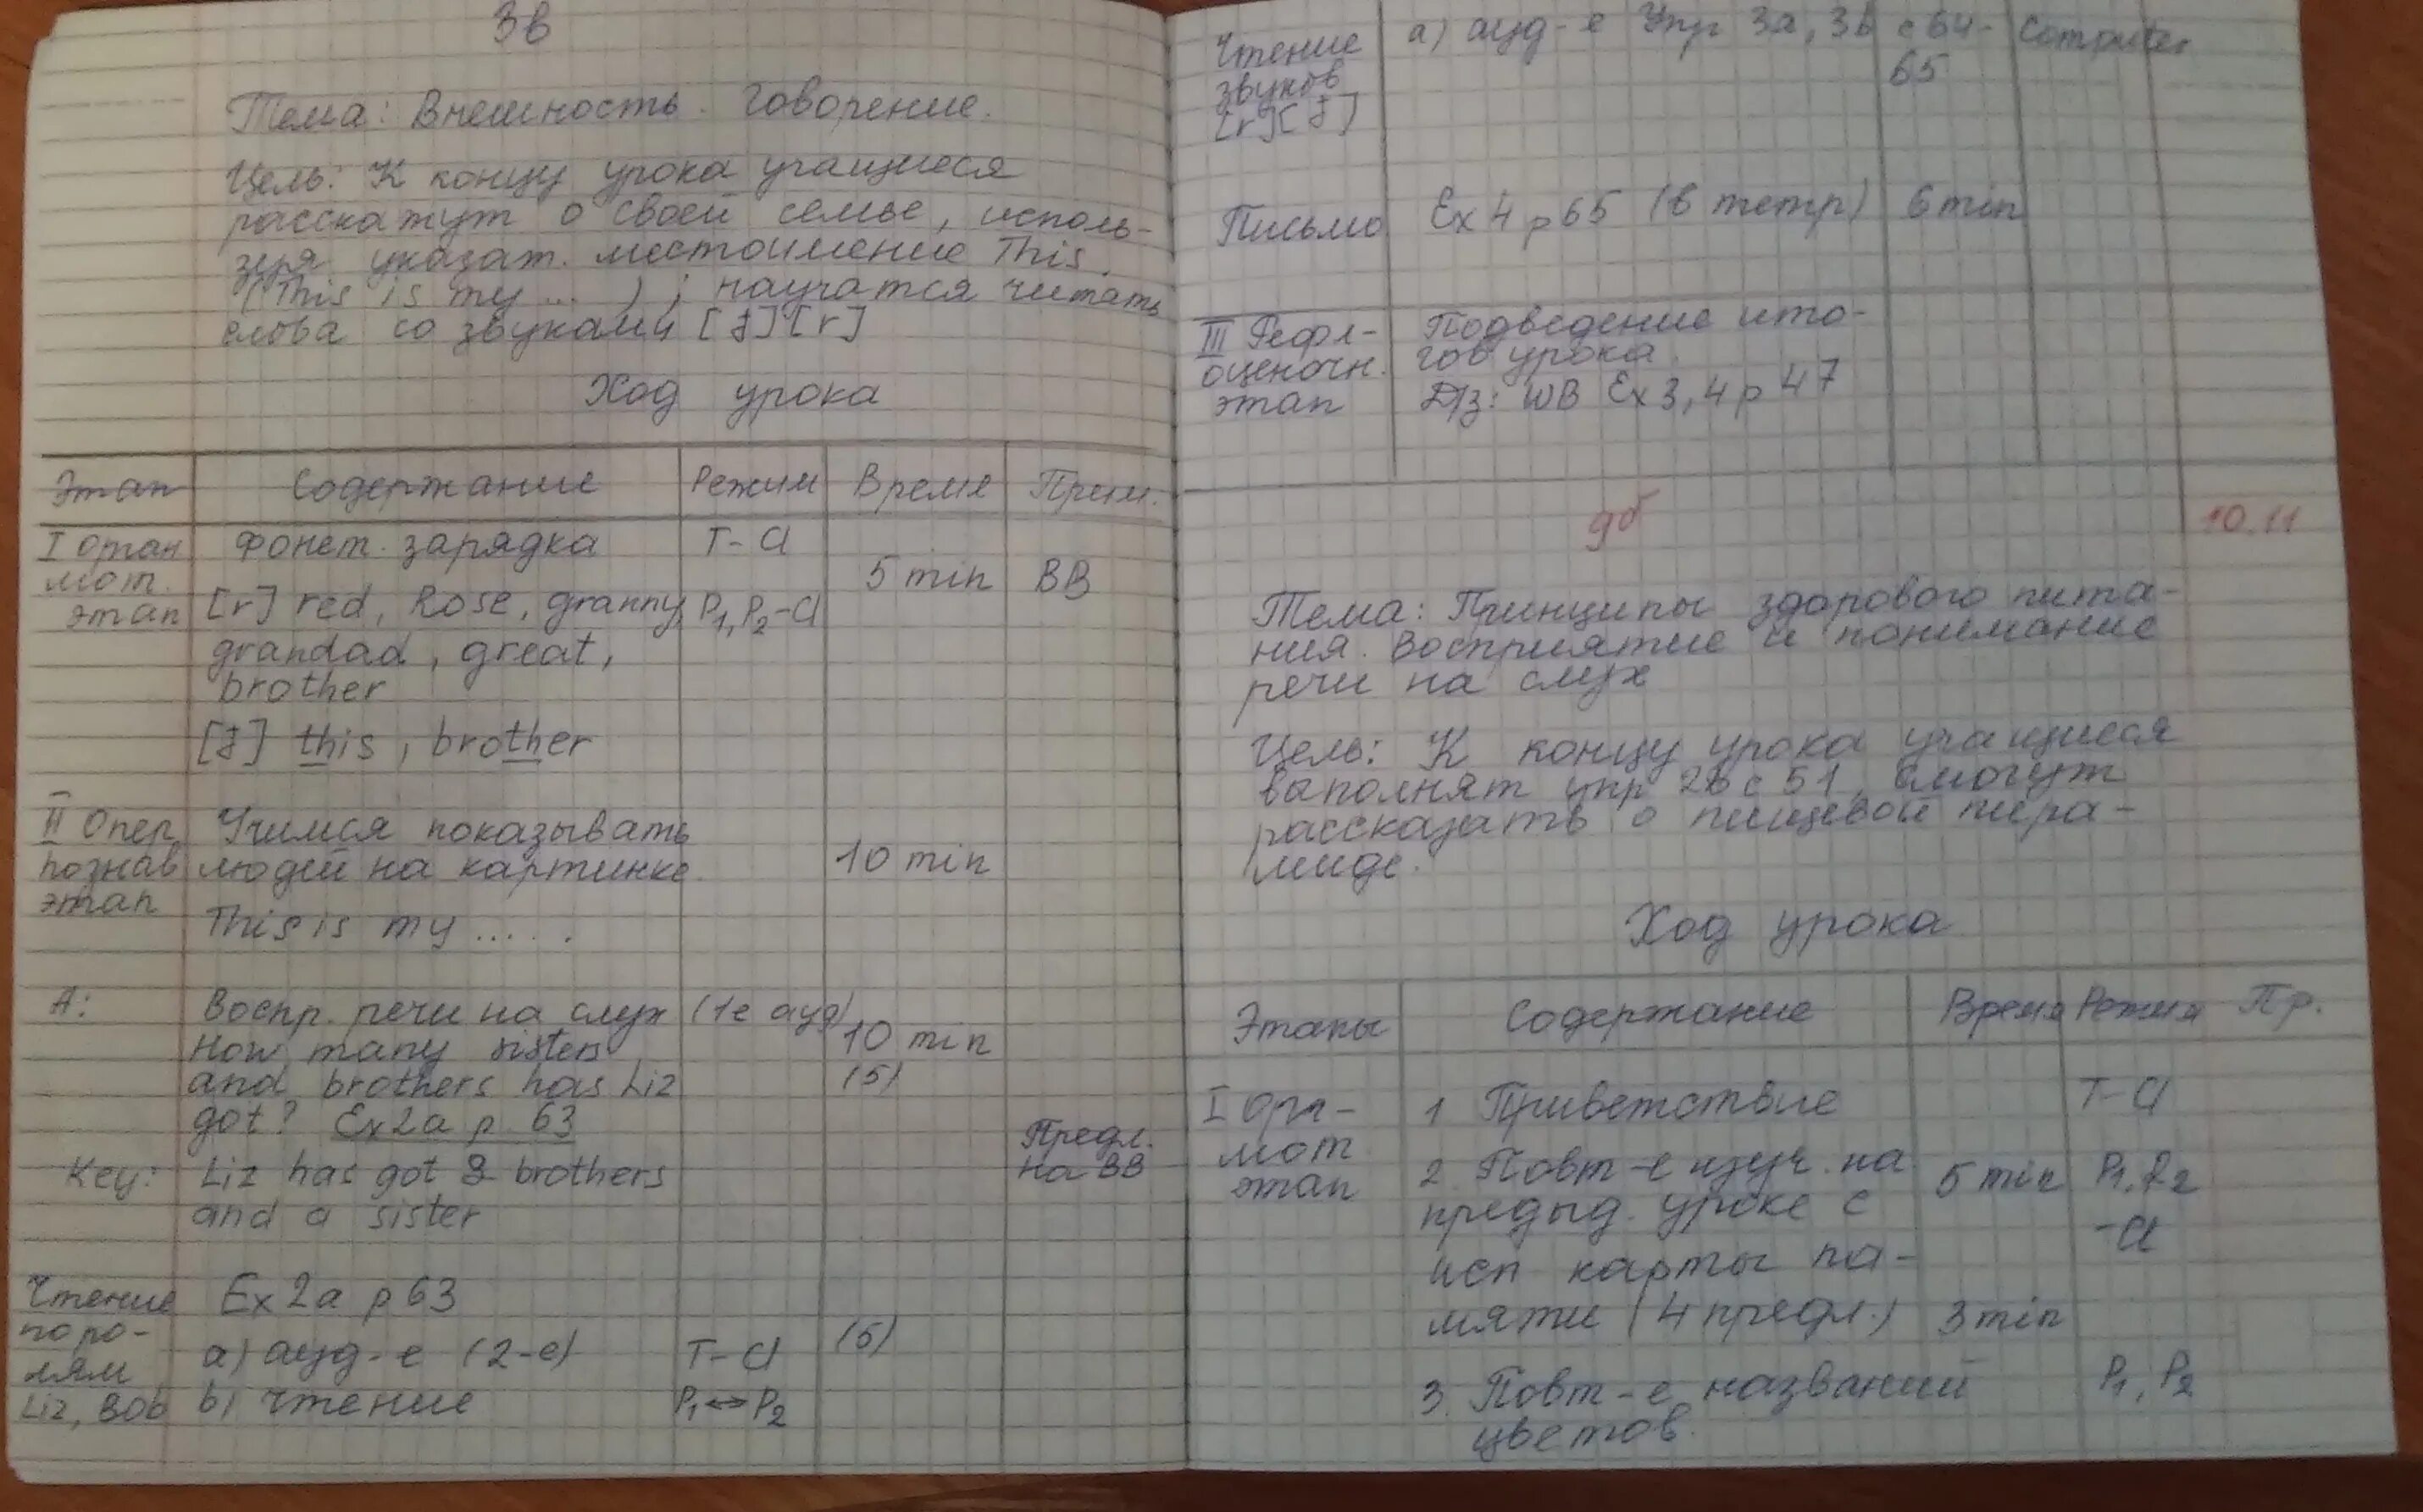 3в
Тема: Внешность. Говорение.
Цель: К концу урока учащиеся
расскажут о своей семье, исполь-
зуя указат. местоимение This.
(This is my ... ); научатся читать
слова со звуками [ʒ][r]
Ход урока
Этап Содержание Режим Время Прим.
I Оган Фонет. зарядка T-Cl
мот. 5 min BB
этап [r] red, Rose, granny, P1, P2-Cl
grandad, great,
brother
[ʒ] this, brother
II Опер. Учимся показывать
познав людей на картинке. 10 min
этап This is my ..... .
A: Воспр. речи на слух (1е ауд) 10 min
How many sisters
and brothers has Liz (5)
got? Ex 2a p 63
Предл.
на BB
Key: Liz has got 2 brothers
and a sister
Чтение Ex 2a p 63
по ро- а) ауд-е (2-е) T-Cl (5)
лям
Liz, Bob b) чтение P1↔P2
Чтение а) ауд-е Упр 3a, 3b с 64- Computer
звуков 65
[r][ʒ]
Письмо Ex 4 p 65 (в тетр) 6 min
III Рефл- Подведение ито-
оценочн. гов урока.
этап Д/з: WB Ex 3, 4 p 47
9б 10.11
Тема: Принципы здорового пита-
ния. Восприятие и понимание
речи на слух
Цель: К концу урока учащиеся
выполнят упр 2b с 51, смогут
рассказать о пищевой пира-
миде.
Ход урока
Этапы Содержание Время Режим Пр.
I Орг- 1 Приветствие T-Cl
мот
этап 2. Повт-е изуч. на 5 min P1, P2
предыд. уроке с -Cl
исп карты па-
мяти (4 предл.) 3 min
3. Повт-е названий P1, P2
цветов.